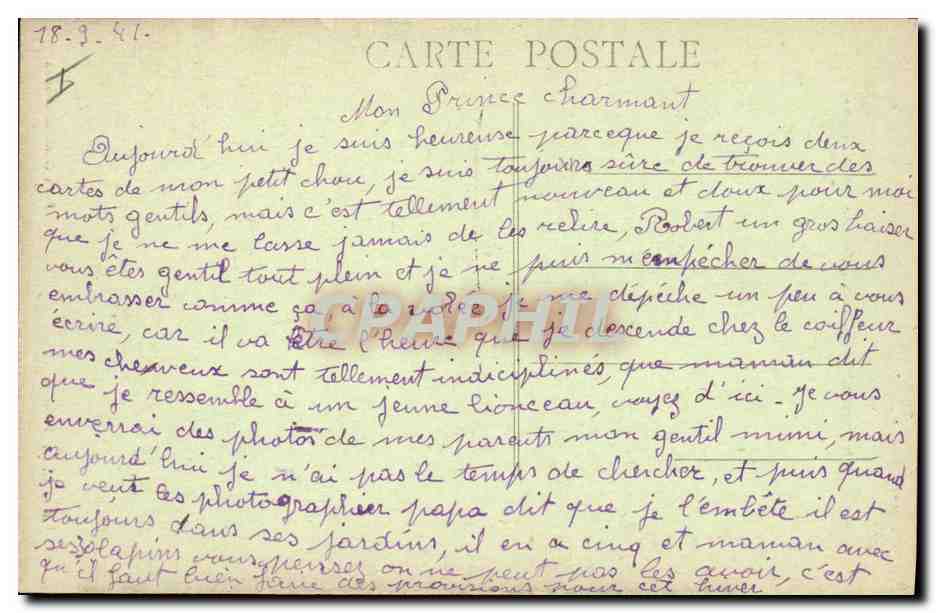 18-9-41.
I
CARTE POSTALE
Mon Prince charmant
Aujourd'hui je suis heureuse parceque je reçois deux
cartes de mon petit chou, je suis toujours sûre de trouver des
mots gentils, mais c'est tellement nouveau et doux pour moi
que je ne me lasse jamais de les relire, Robert un gros baiser
vous êtes gentil tout plein et je ne puis m'empécher de vous
embrasser comme ça à la volée, je me dépéche un peu à vous
écrire, car il va être l'heure que je descende chez le coiffeur
mes cheveux sont tellement indiciplinés, que maman dit
que je ressemble à un jeune lionceau, voyez d'ici - Je vous
enverrai des photos de mes parents mon gentil mimi, mais
aujourd'hui je n'ai pas le temps de chercher, et puis quand
je veut les photographier papa dit que je l'embête il est
toujours dans ses jardins, il en a cinq et maman avec
ses 30 lapins vous pensez on ne peut pas les avoir, c'est
qu'il faut bien faire des provisions pour cet hiver
CPAPHIL